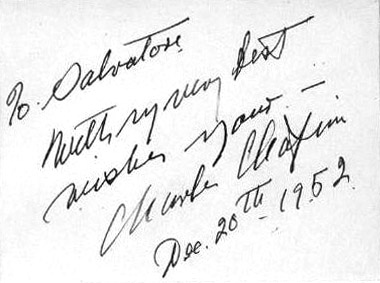 To. Salvatore
With my very best
wishes yours. –
Charles Chaplin
Dec. 20TH 1952.